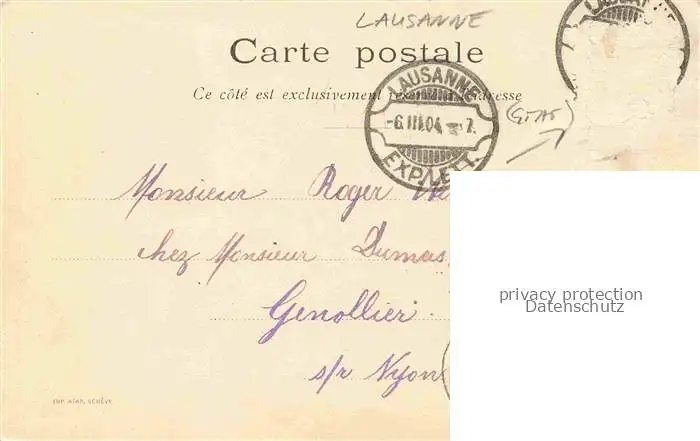 LAUSANNE
Carte postale
Ce côté est exclusivement réservé à l'adresse
LAUSANNE
-6.III.04.-7.
EXP.LETT.
Monsieur Roger
chez Monsieur Dumas
Genollier.
s/r Nyon
privacy protection
Datenschutz
IMP. ATAR, GENÈVE